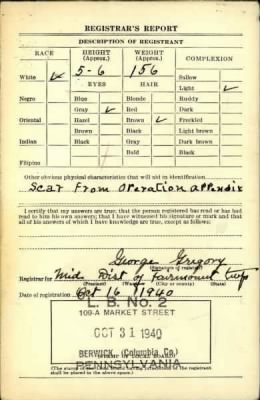 REGISTRAR'S REPORT
DESCRIPTION OF REGISTRANT
RACE HEIGHT (Approx.) WEIGHT (Approx.) COMPLEXION
White 5-6 156 Sallow
EYES HAIR Light
Negro Blue Blonde Ruddy
Gray Red Dark
Oriental Hazel Brown Freckled
Brown Black Light brown
Indian Black Gray Dark brown
Bald Black
Filipino
Other obvious physical characteristics that will aid in identification
Scar From Operation appendix
I certify that my answers are true; that the person registered has read or has had
read to him his own answers; that I have witnessed his signature or mark and that
all of his answers of which I have knowledge are true, except as follows:
George Gregory
(Signature of registrar)
Registrar for Mid Dist of Fairmount Twp
(Precinct) (Ward) (City or county)
Date of registration Oct 16 1940
L. B. No. 2
109-A MARKET STREET
OCT 31 1940
BERWICK, (Columbia Co.)
(STAMP OF LOCAL BOARD)
PENNSYLVANIA
(The stamp of the Local Board having jurisdiction of the registrant
shall be placed in the above space.)